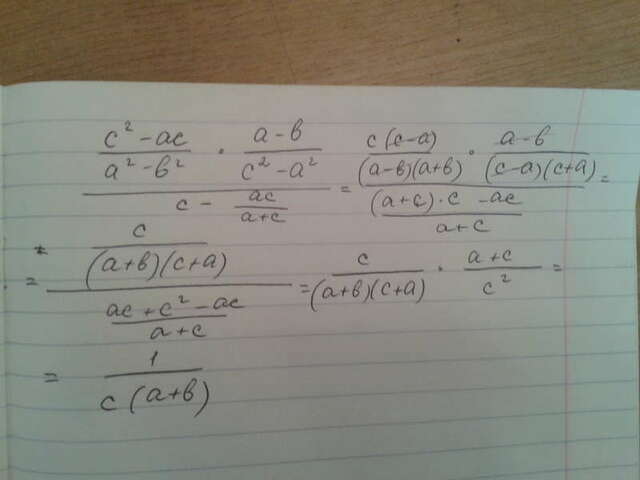 c² - ac / a² - в² · a - в / c² - a² / c - ac / a+c = c(c-a) / (a-в)(a+в) · a - в / (c-a)(c+a) / (a+c)·c - ac / a+c =
= c / (a+в)(c+a) / ac + c² - ac / a+c = c / (a+в)(c+a) · a+c / c² =
= 1 / c(a+в)